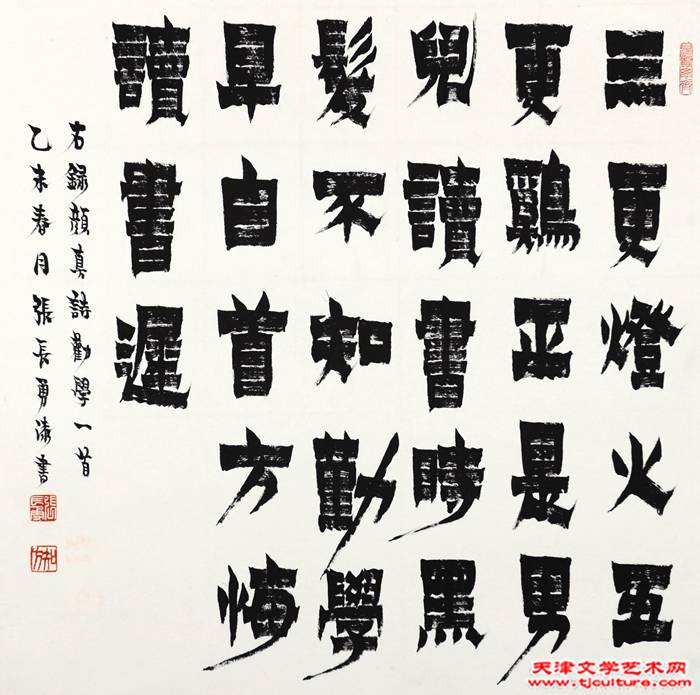 三更燈火五
更鷄正是男
兒讀書時黑
髮不知勤學
早白首方悔
讀書遲
右錄顏真詩勸學一首
乙未春月張長勇漆書
天津文学艺术网
www.tjculture.com